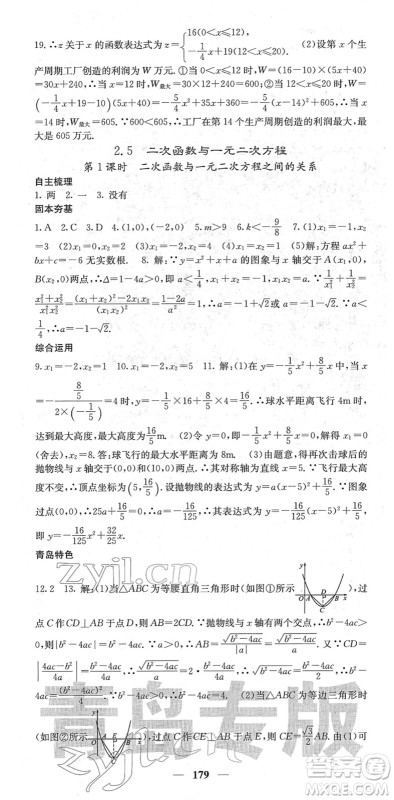 19. ∴z关于x的函数表达式为z={16(0<x≤12), -1/4x+19(12<x≤20). (2)设第x个生
产周期工厂创造的利润为W万元.①当0<x≤12时,W=(16-10)×(5x+40)
=30x+240,∴当x=12时,W最大=30×12+240=600;②当12<x≤20时,W=
(-1/4x+19-10)(5x+40)=-5/4x²+35x+360=-5/4(x-14)²+605,∴当x=14
时,W最大=605万元.∵605>600,∴工厂在第14个生产周期创造的利润最大,最
大是605万元.
2.5 二次函数与一元二次方程
第1课时 二次函数与一元二次方程之间的关系
自主梳理
1.两 2.一 3.没有
固本夯基
1.A 2.C 3.D 4.(1,0),(-2,0) 5.m>9 6.k<-9/4 7.(1)x₁=-1,
x₂=3 (2)x₁=0,x₂=2 (3)x₁=x₂=1 (4)x₁=1,x₂=1 (5)解:方程ax²+
bx+c=-6无实数根. 8.解:∵y=x²+x+a的图象与x轴交于A(x₁,0),
B(x₂,0)两点,∴Δ=1-4a>0,即a<1/4,x₁+x₂=-1,x₁·x₂=a.∵1/x₁²+1/x₂²=
(x₁²+x₂²)/(x₁²x₂²)=((x₁+x₂)²-2x₁x₂)/(x₁x₂)²=(1-2a)/a²=1,∴a=-1+√2或a=-1-√2.∵a<
1/4,∴a=-1-√2.
综合运用
9.x₁=-1,x₂=2 10.x₁=-4,x₂=1 11.解:(1)在y=-1/5x²+8/5x中,当x=
-(8/5)/(2×(-1/5))=4时,y=-1/5×16+8/5×4=16/5.∴球水平距离飞行4m时,
达到最大高度,最大高度为16/5m. (2)令y=0,即-1/5x²+8/5x=0,解得x₁=0
(舍去),x₂=8.答:球飞行的最大水平距离是8m. (3)由题意得再次击出后的
抛物线与x轴交于(0,0),(10,0)两点,∴其对称轴为直线x=5.∵飞行最大高
度不变,∴顶点坐标为(5,16/5).设抛物线的表达式为y=a(x-5)²+16/5.∵图象
过点(0,0),∴25a+16/5=0,∴a=-16/125,∴表达式为y=-16/125(x-5)²+16/5,
即y=-16/125x²+32/25x.
青岛特色
12.2 13.解:(1)当△ABC为等腰直角三角形时(如图①所示),过
点C作CD⊥AB于点D,则AB=2CD.∵抛物线与x轴有两个交点,∴b²-4ac>0,
则|b²-4ac|=b²-4ac.∵a>0,∴AB=√(b²-4ac)/|a|=√(b²-4ac)/a.又∵CD=
|(4ac-b²)/4a|=(b²-4ac)/4a,∴√(b²-4ac)/a=(b²-4ac)/2a,∴√(b²-4ac)=(b²-4ac)/2.又∵
b²-4ac≠0,∴b²-4ac=4. (2)当△ABC为等边三角形时
(如图②所示),过点C作CE⊥AB于点E,则CE=√3/2AB.由(1)可
179